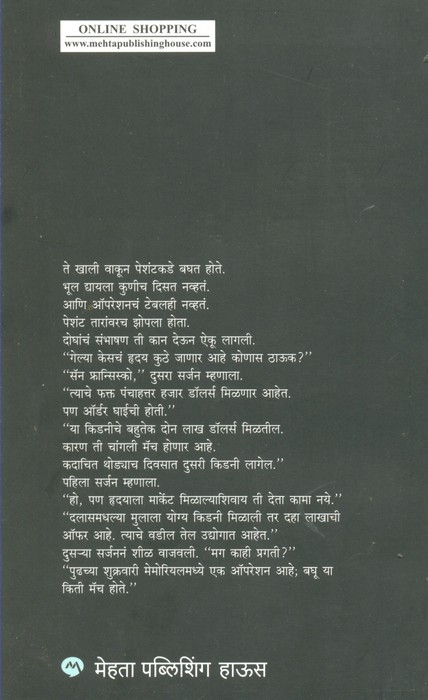 ONLINE SHOPPING
www.mehtapublishinghouse.com
ते खाली वाकून पेशंटकडे बघत होते.
भूल द्यायला कुणीच दिसत नव्हतं.
आणि ऑपरेशनचं टेबलही नव्हतं.
पेशंट तारांवरच झोपला होता.
दोघांचं संभाषण ती कान देऊन ऐकू लागली.
“गेल्या केसचं हृदय कुठे जाणार आहे कोणास ठाऊक?”
“सॅन फ्रान्सिस्को,” दुसरा सर्जन म्हणाला.
“त्याचे फक्त पंचाहत्तर हजार डॉलर्स मिळणार आहेत.
पण ऑर्डर घाईची होती.”
“या किडनीचे बहुतेक दोन लाख डॉलर्स मिळतील.
कारण ती चांगली मॅच होणार आहे.
कदाचित थोड्याच दिवसात दुसरी किडनी लागेल.”
पहिला सर्जन म्हणाला.
“हो, पण हृदयाला मार्केट मिळाल्याशिवाय ती देता कामा नये.”
“दलासमधल्या मुलाला योग्य किडनी मिळाली तर दहा लाखाची
ऑफर आहे. त्याचे वडील तेल उद्योगात आहेत.”
दुसऱ्या सर्जननं शीळ वाजवली. “मग काही प्रगती?”
“पुढच्या शुक्रवारी मेमोरियलमध्ये एक ऑपरेशन आहे; बघू या
किती मॅच होते.”
मेहता पब्लिशिंग हाऊस